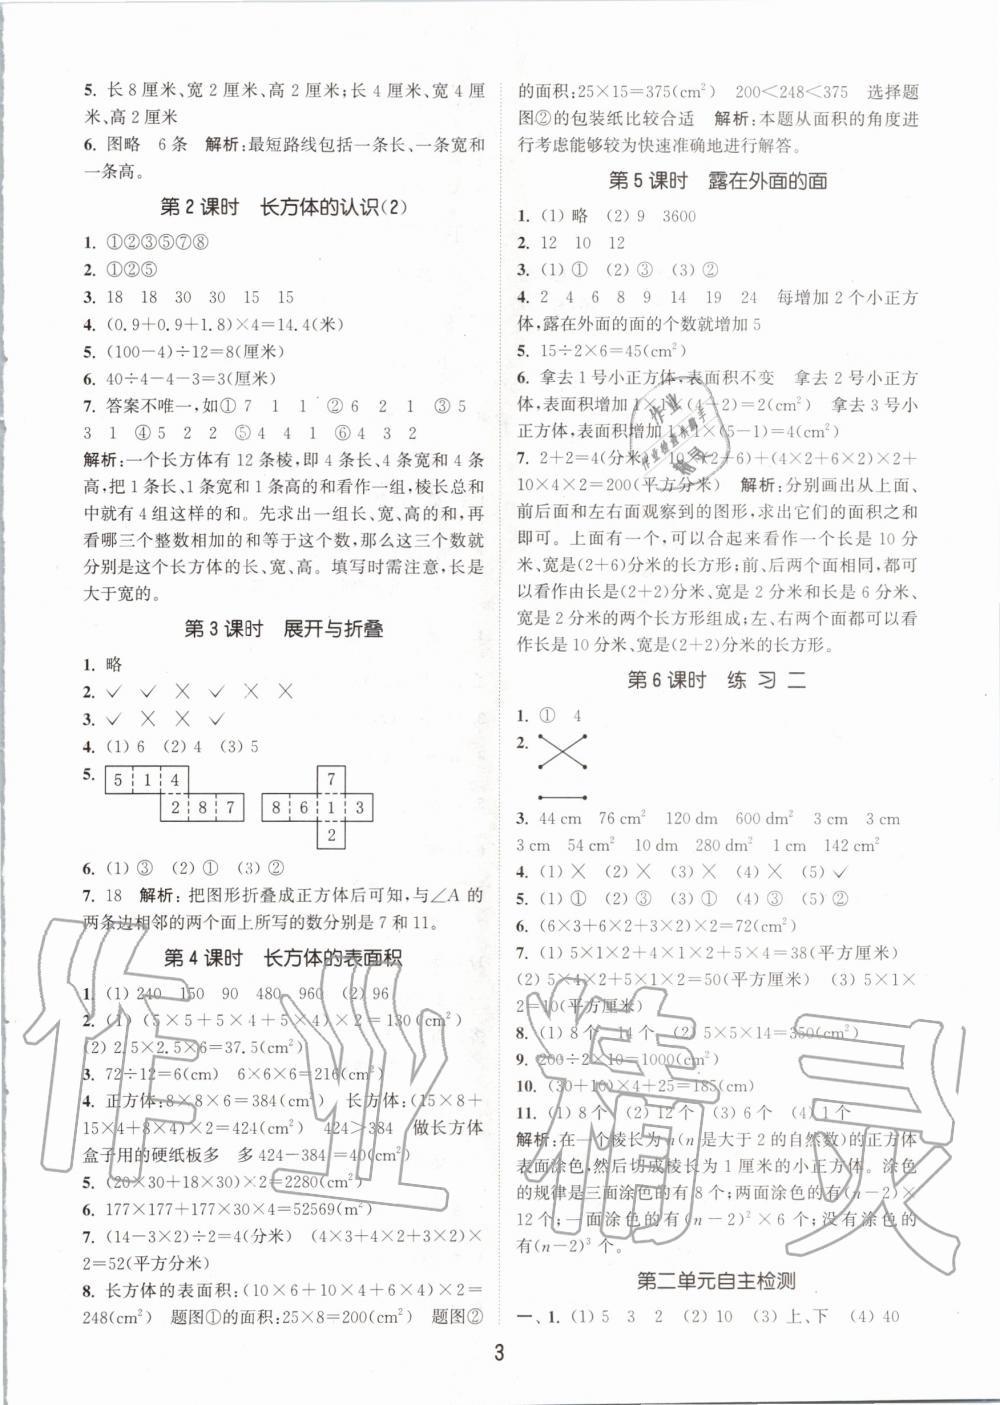 5. 长8厘米、宽2厘米、高2厘米;长4厘米、宽4厘
米、高2厘米
6. 图略　6条　解析:最短路线包括一条长、一条宽和
一条高。
第2课时　长方体的认识(2)
1. ①②③⑤⑦⑧
2. ①②⑤
3. 18　18　30　30　15　15
4. (0.9+0.9+1.8)×4=14.4(米)
5. (100-4)÷12=8(厘米)
6. 40÷4-4-3=3(厘米)
7. 答案不唯一,如①7　1　1　②6　2　1　③5
3　1　④5　2　2　⑤4　4　1　⑥4　3　2
解析:一个长方体有12条棱,即4条长、4条宽和4条
高,把1条长、1条宽和1条高的和看作一组,棱长总和
中就有4组这样的和。先求出一组长、宽、高的和,再
看哪三个整数相加的和等于这个数,那么这三个数就
分别是这个长方体的长、宽、高。填写时需注意,长是
大于宽的。
第3课时　展开与折叠
1. 略
2. ✓　✓　×　✓　×　×
3. ✓　×　×　✓
4. (1)6　(2)4　(3)5
5. 5 1 4　7
2 8 7　8 6 1 3
2
6. (1)③　(2)①　(3)②
7. 18　解析:把图形折叠成正方体后可知,与∠A的
两条边相邻的两个面上所写的数分别是7和11。
第4课时　长方体的表面积
1. (1)240　150　90　480　960　(2)96
2. (1)(5×5+5×4+5×4)×2=130(cm²)
(2)2.5×2.5×6=37.5(cm²)
3. 72÷12=6(cm)　6×6×6=216(cm²)
4. 正方体:8×8×6=384(cm²)　长方体:(15×8+
15×4+8×4)×2=424(cm²)　424>384　做长方体
盒子用的硬纸板多　多424-384=40(cm²)
5. (20×30+18×30)×2=2280(cm²)
6. 177×177+177×30×4=52569(m²)
7. (14-3×2)÷2=4(分米)　(4×3+4×2+3×2)×
2=52(平方分米)
8. 长方体的表面积:(10×6+10×4+6×4)×2=
248(cm²)　题图①的面积:25×8=200(cm²)　题图②
的面积:25×15=375(cm²)　200<248<375　选择题
图②的包装纸比较合适　解析:本题从面积的角度进
行考虑能够较为快速准确地进行解答。
第5课时　露在外面的面
1. (1)略　(2)9　3600
2. 12　10　12
3. (1)①　(2)③　(3)②
4. 2　4　6　8　9　14　19　24　每增加2个小正方
体,露在外面的面的个数就增加5
5. 15÷2×6=45(cm²)
6. 拿去1号小正方体,表面积不变　拿去2号小正方
体,表面积增加1×1×(4-2)=2(cm²)　拿去3号小
正方体,表面积增加1×1×(5-1)=4(cm²)
7. 2+2=4(分米)　10×(2+6)+(4×2+6×2)×2+
10×4×2=200(平方分米)　解析:分别画出从上面、
前后面和左右面观察到的图形,求出它们的面积之和
即可。上面有一个,可以合起来看作一个长是10分
米、宽是(2+6)分米的长方形;前、后两个面相同,都可
以看作由长是(2+2)分米、宽是2分米和长是6分米、
宽是2分米的两个长方形组成;左、右两个面都可以看
作长是10分米、宽是(2+2)分米的长方形。
第6课时　练习二
1. ①　4
2.
3. 44 cm　76 cm²　120 dm　600 dm²　3 cm　3 cm
3 cm　54 cm²　10 dm　280 dm²　1 cm　142 cm²
4. (1)×　(2)×　(3)×　(4)×　(5)✓
5. (1)①　(2)③　(3)①　(4)③　(5)②
6. (6×3+6×2+3×2)×2=72(cm²)
7. (1)5×1×2+4×1×2+5×4=38(平方厘米)
(2)5×4×2+5×1×2=50(平方厘米)　(3)5×1×
2=10(平方厘米)
8. (1)8个　14个　(2)5×5×14=350(cm²)
9. 200÷2×10=1000(cm²)
10. (30+10)×4+25=185(cm)
11. (1)8个　(2)12个　(3)6个　(4)1个
解析:在一个棱长为n(n是大于2的自然数)的正方体
表面涂色,然后切成棱长为1厘米的小正方体。涂色
的规律是三面涂色的有8个;两面涂色的有(n-2)×
12个;一面涂色的有(n-2)²×6个;没有涂色的
有(n-2)³个。
第二单元自主检测
一、1. (1)5　3　2　(2)10　(3)上、下　(4)40
3
作业精灵